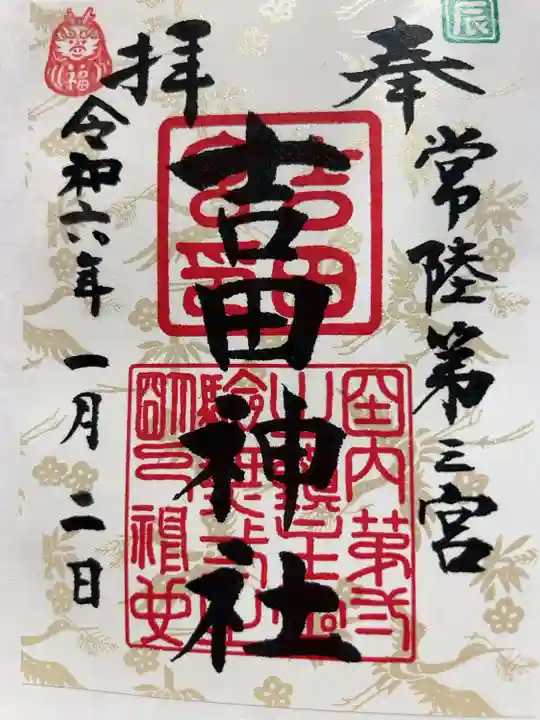 辰
奉
拝
常陸第三宮
吉田神社
令和六年 一月 二日
福